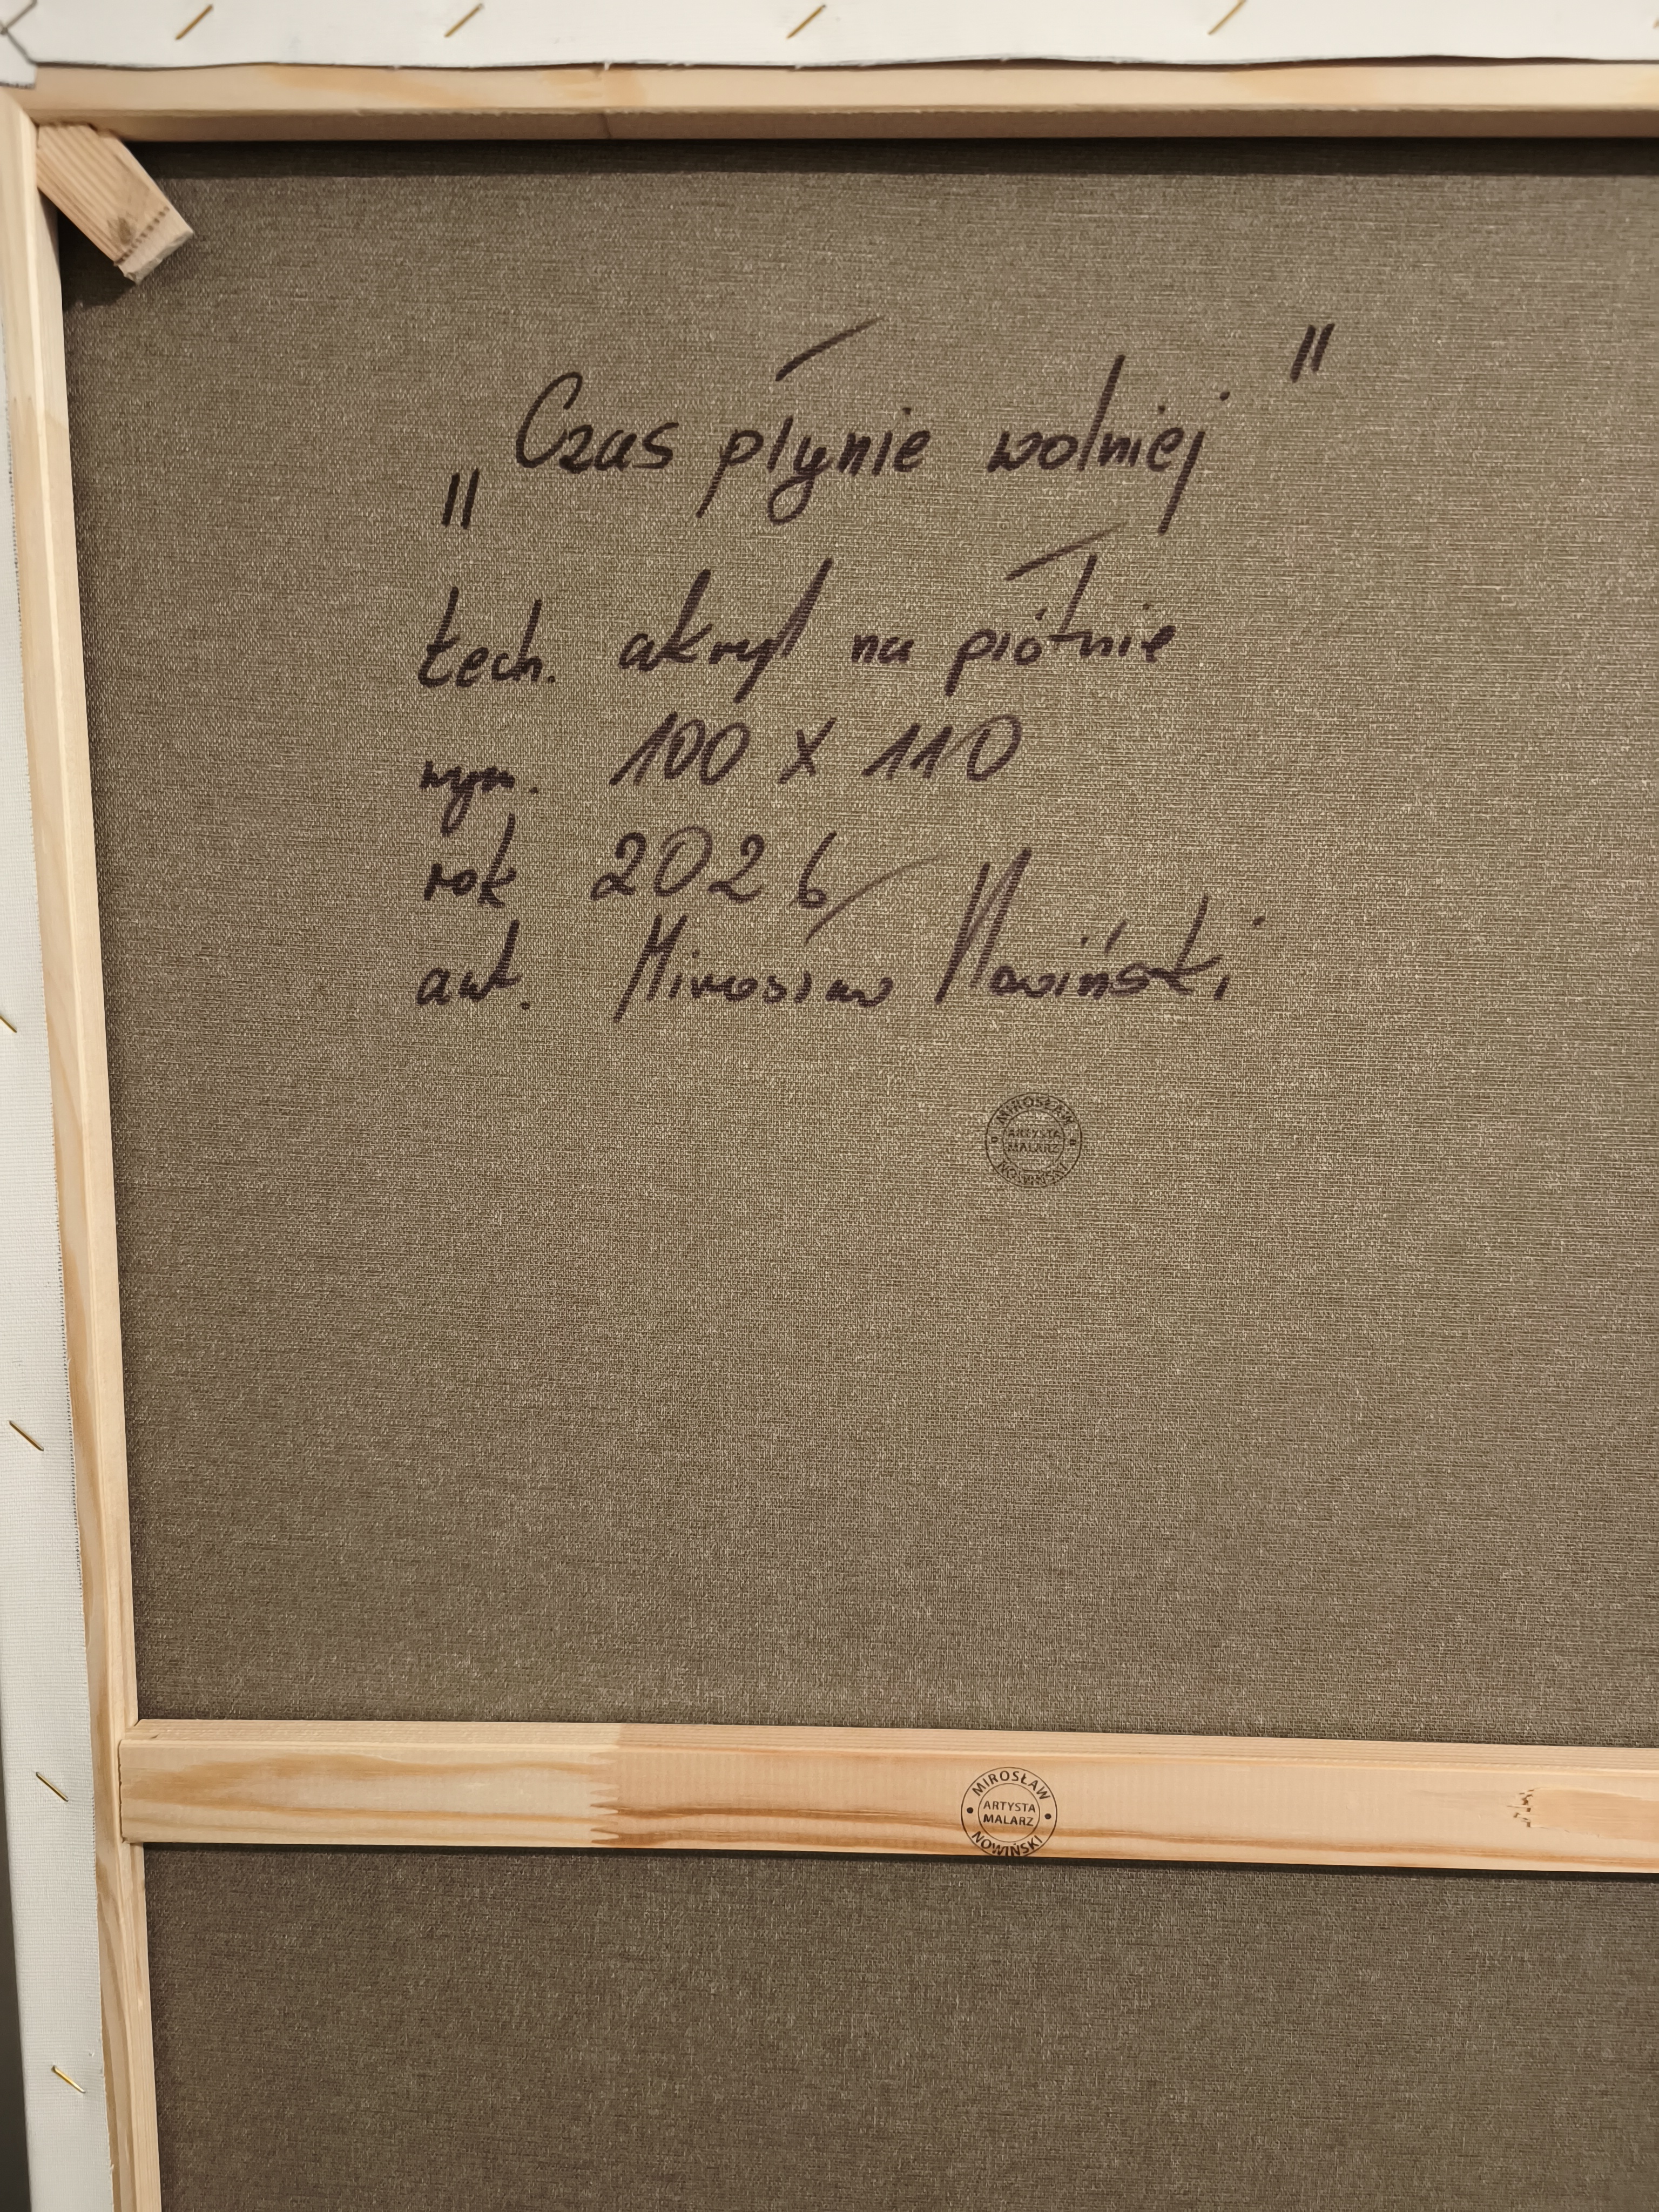 „Czas płynie wolniej"
tech. akryl na płótnie
wym. 100 x 110
rok 2026
aut. Mirosław Nowiński
MIROSŁAW
ARTYSTA
MALARZ
NOWIŃSKI
MIROSŁAW
ARTYSTA
MALARZ
NOWIŃSKI